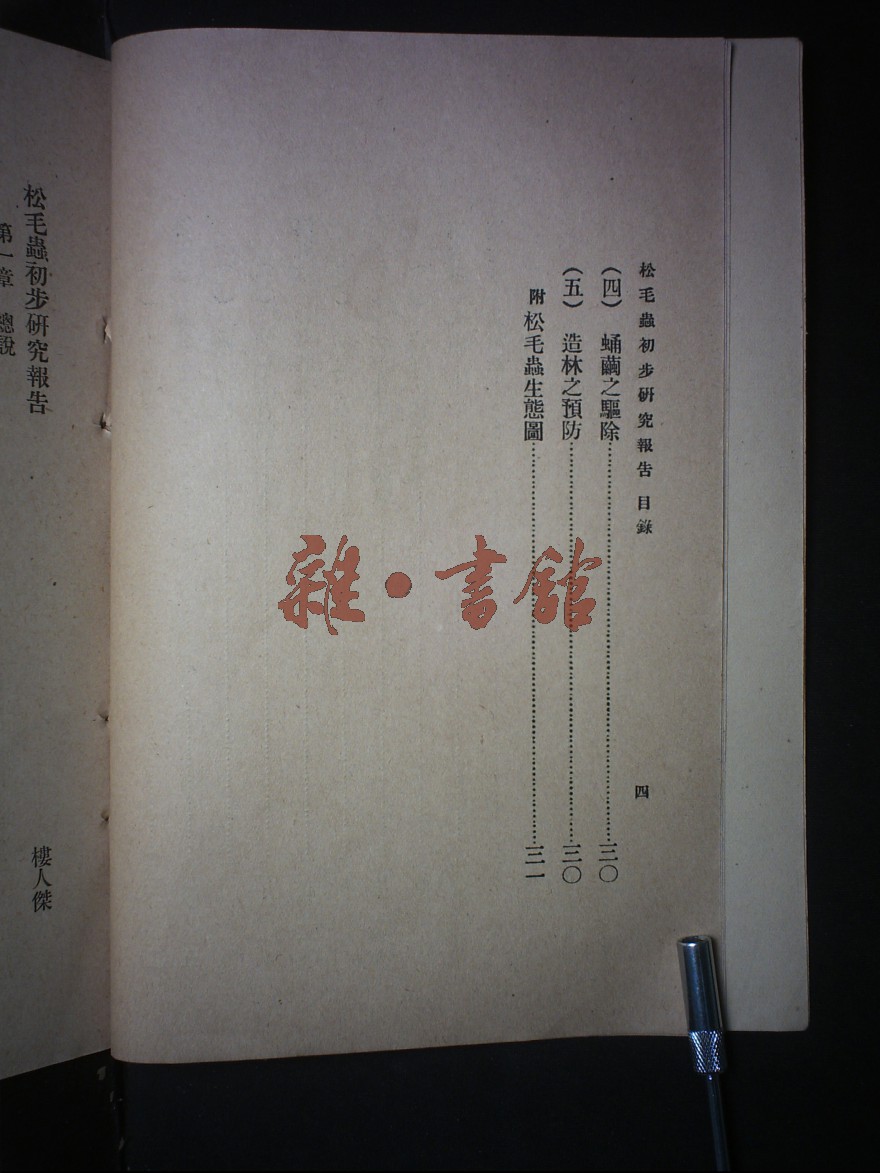 松毛蟲初步研究報告 目錄 四
(四) 蛹繭之驅除……三〇
(五) 造林之預防……三〇
附 松毛蟲生態圖……三一
雜•書館
松毛蟲初步研究報告
樓人傑
第一章 總說